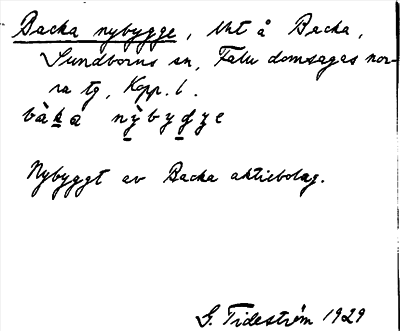 Backa nybygge, Uht å Backa,
Sundborns sn, Falu domsagas nor-
ra tg, Kopp. l.
bàka nỳbygge
Nybyggt av Backa aktiebolag.
G. Tideström 1929